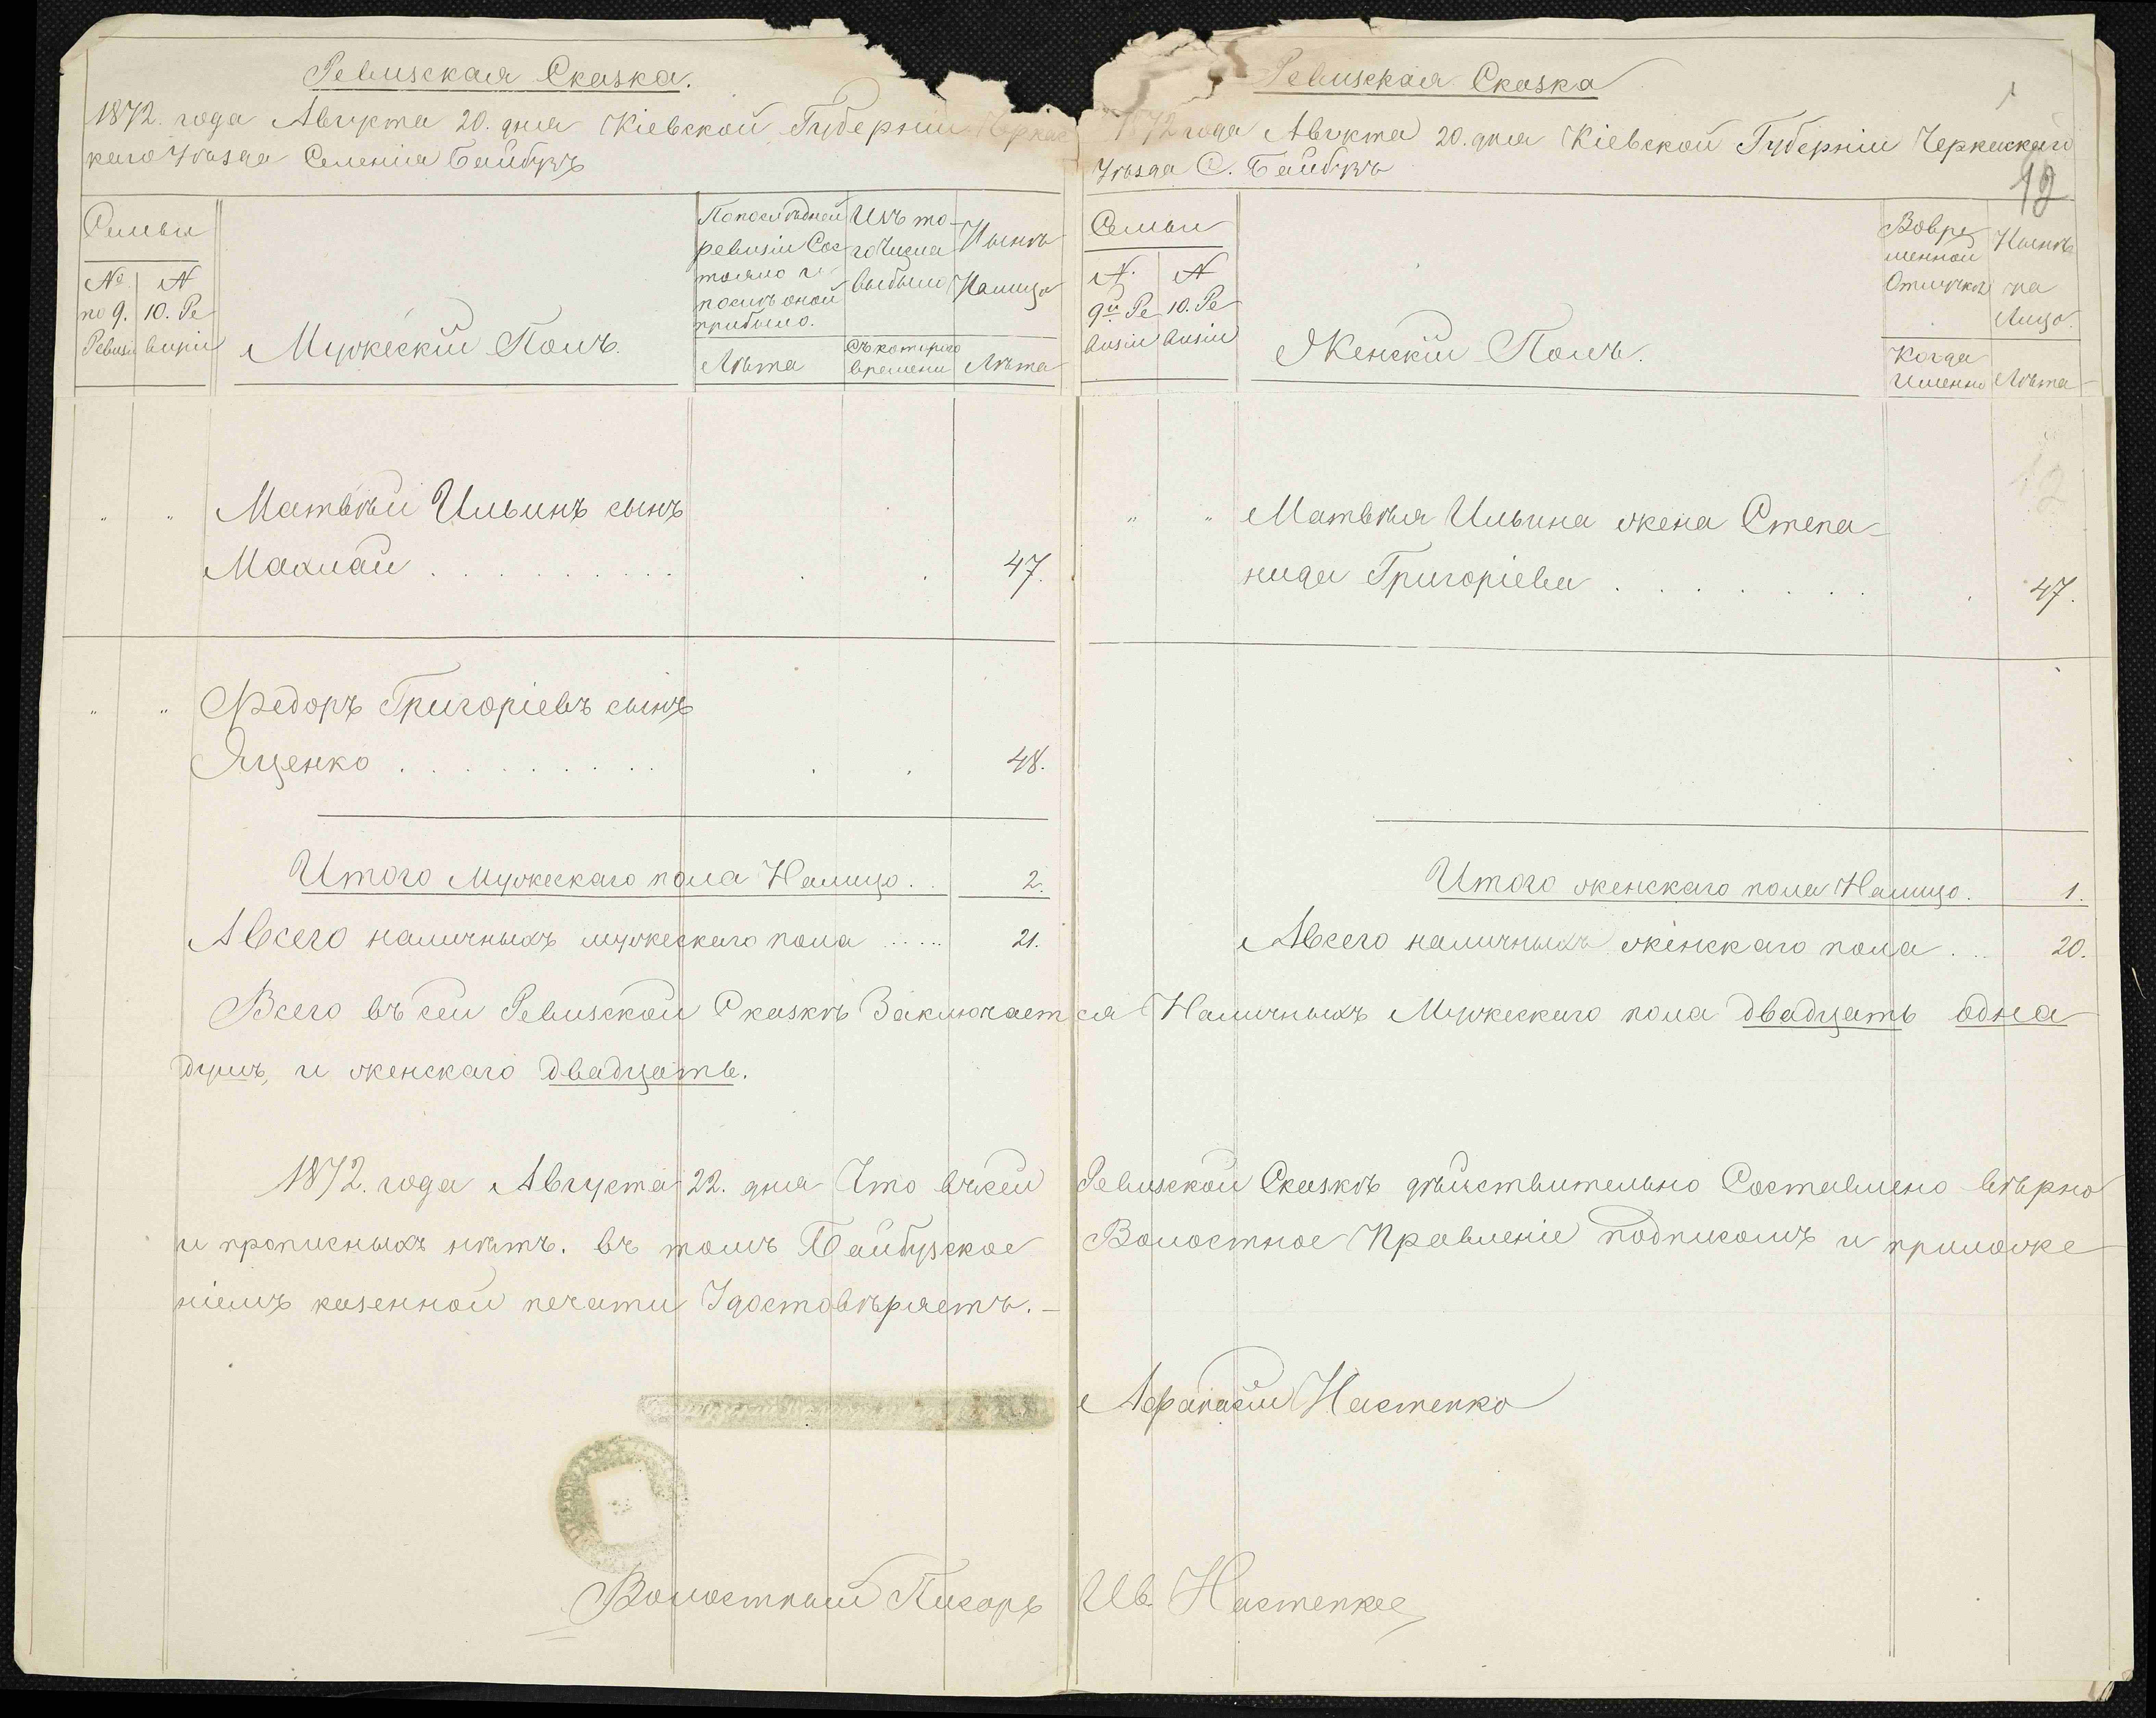 Ревизская Сказка.
1872. года Августа 20. дня Кіевской Губерніи Черкас
каго Уѣзда Селенія Байбузъ
Семьи
№ по 9. Ревизіи
№ 10. Ревизіи
Мужескій Полъ.
По послѣдней
ревизіи Сос
тояло и
послѣ оной
прибыло.
Лѣта
Изъ то-
го числа
выбыло
Съ котораго
времени
Нынѣ
Налицо
Лѣта
Матвѣй Ильинъ сынъ
Махлай . . . . . . . . . . 47.
Федоръ Григоріевъ сынъ
Яценко . . . . . . . . . . 48.
Итого Мужескаго пола Налицо . . 2.
А всего наличныхъ мужескаго пола ...... 21.
Ревизская Сказка
1872 года Августа 20. дня Кіевской Губерніи Черкаскаго
Уѣзда С. Байбузъ
12
Семьи
№ 9й Ревизіи
№ 10. Ревизіи
Женскій Полъ.
Вовре
менной
Отлучки
Когда
Именно
Нынѣ
на
Лицо.
Лѣта
12
Матвѣя Ильина жена Степа-
нида Григоріева . . . . . . . . 47.
Итого женскаго пола Налицо. 1.
А всего наличныхъ женскаго пола . ... 20.
Всего въ сей Ревизской Сказкѣ Заключается Наличныхъ Мужескаго пола двадцать одна
душъ, и женскаго двадцать.
1872. года Августа 22. дня Что въ сей Ревизской Сказкѣ дѣйствительно Составлено вѣрно
и прописныхъ нѣтъ. въ томъ Байбузское Волостное Правленіе подписомъ и приложе
ніемъ казенной печати Удостовѣряетъ. –
Афанасій Настенко
Волостный Писарь Ив. Настенко